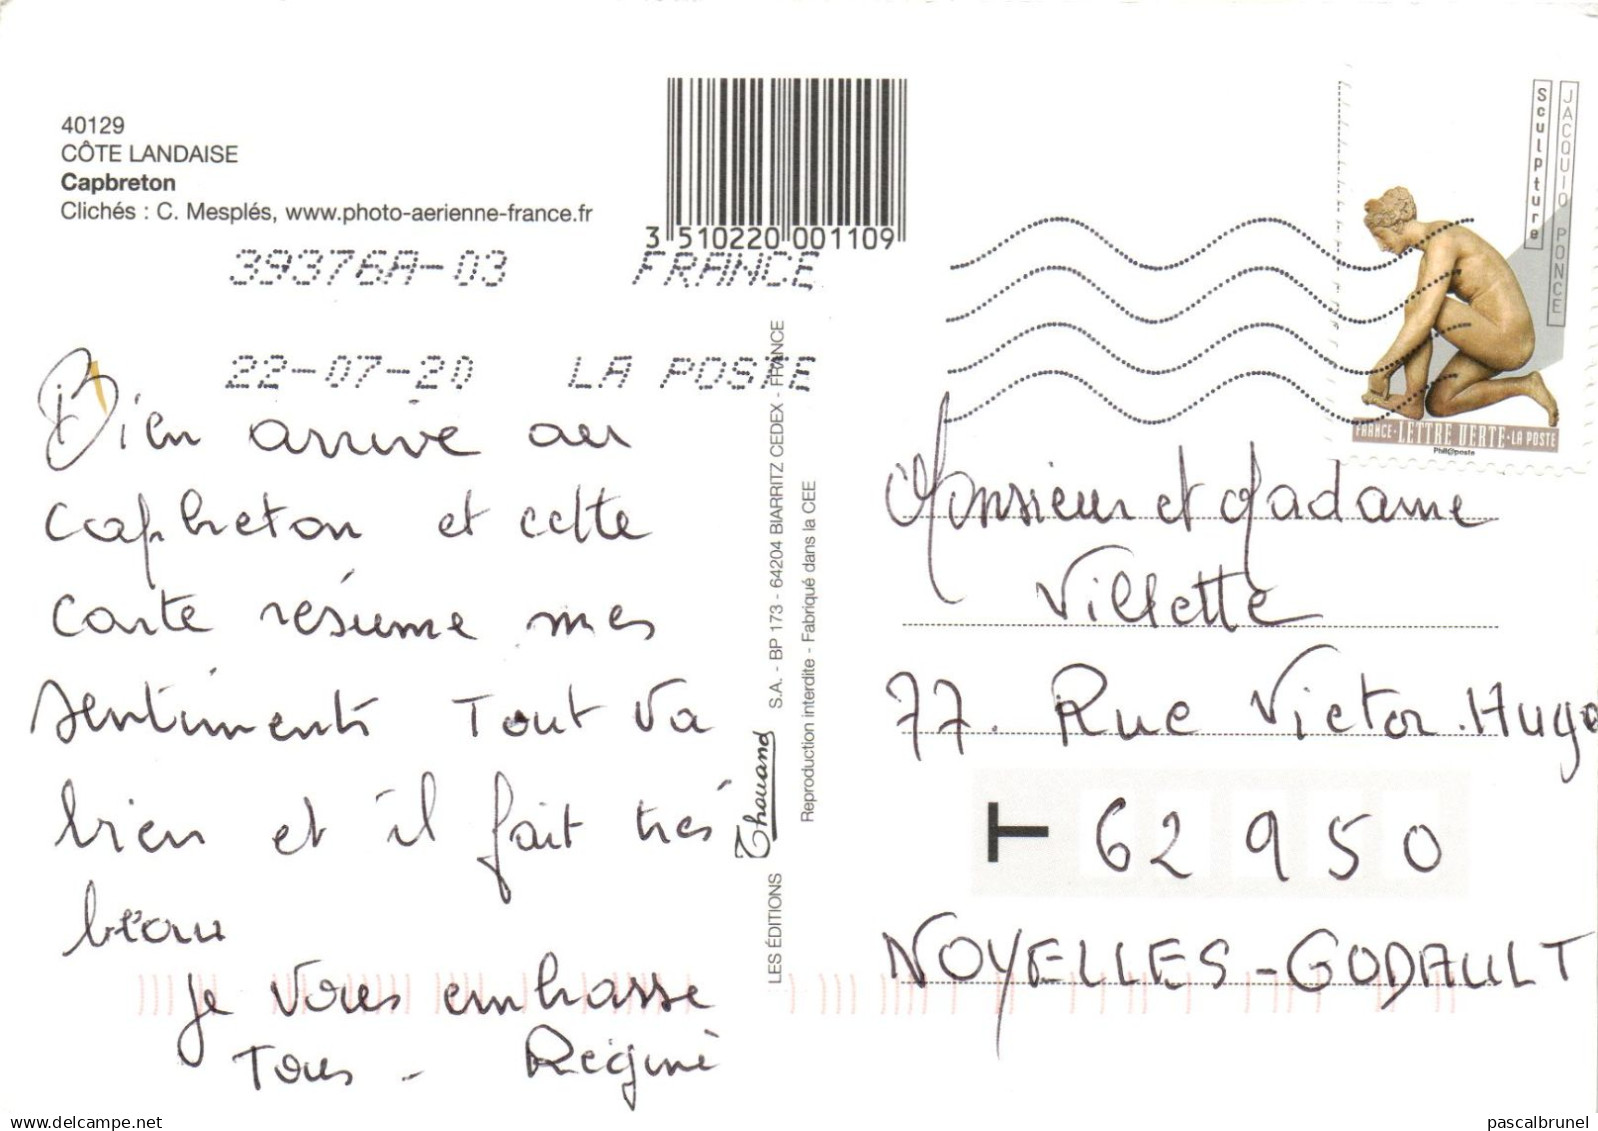 40129
CÔTE LANDAISE
Capbreton
Clichés : C. Mesplés, www.photo-aerienne-france.fr
3 510220 001109
39376A-03 FRANCE
22-07-20 LA POSTE
Sculpture
JACQUIO PONCE
FRANCE • LETTRE VERTE • LA POSTE
Phil@poste
Bien arrivé au
Capbreton et cette
carte résume mes
sentiments Tout va
bien et il fait très
beau
je vous embrasse
Tous - Régine
LES ÉDITIONS Thouand S.A. - BP 173 - 64204 BIARRITZ CEDEX - FRANCE
Reproduction interdite - Fabriqué dans la CEE
Monsieur et Madame
Villette
77. Rue Victor.Hugo
T 62950
NOYELLES-GODAULT
delcampe.net
pascalbrunel